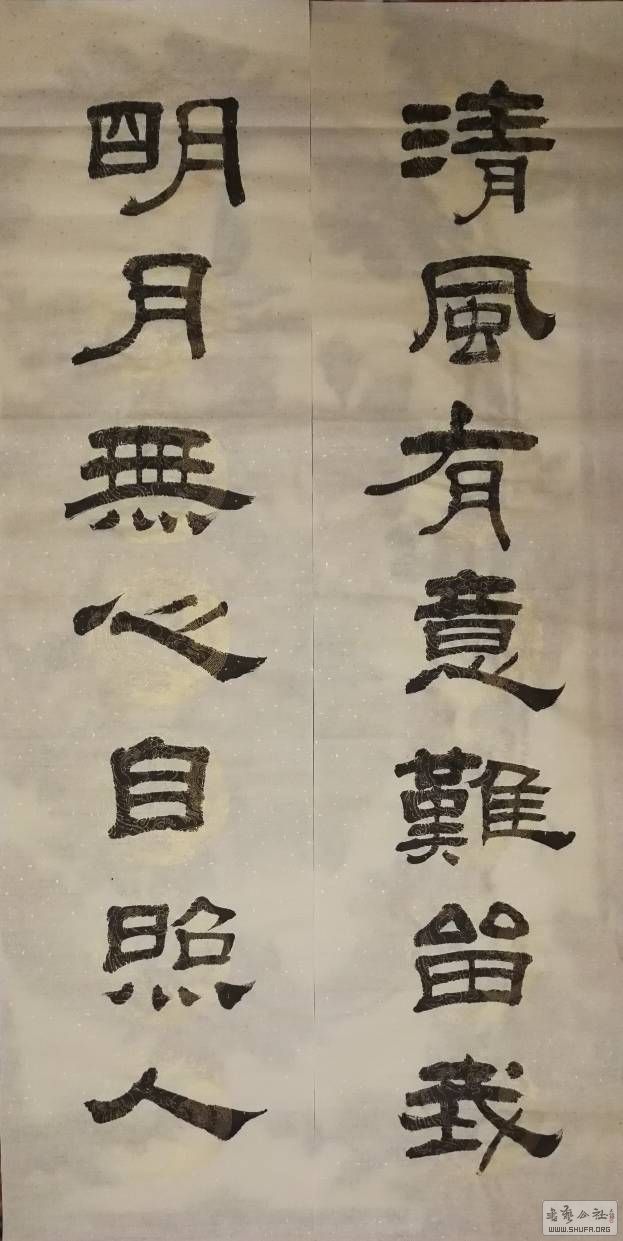 清風有意難留我
明月無心自照人
书艺公社
WWW.SHUFA.ORG